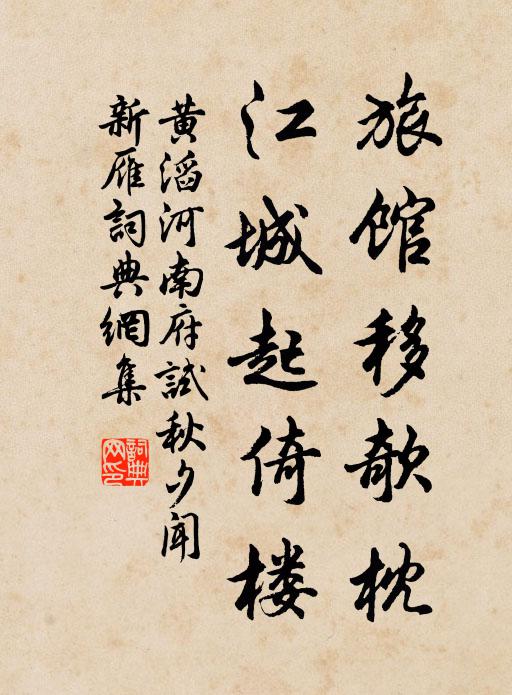 旅馆移欹枕
江城起倚楼
黄滔河南府試秋夕聞
新雁詞典網集
詞典网印